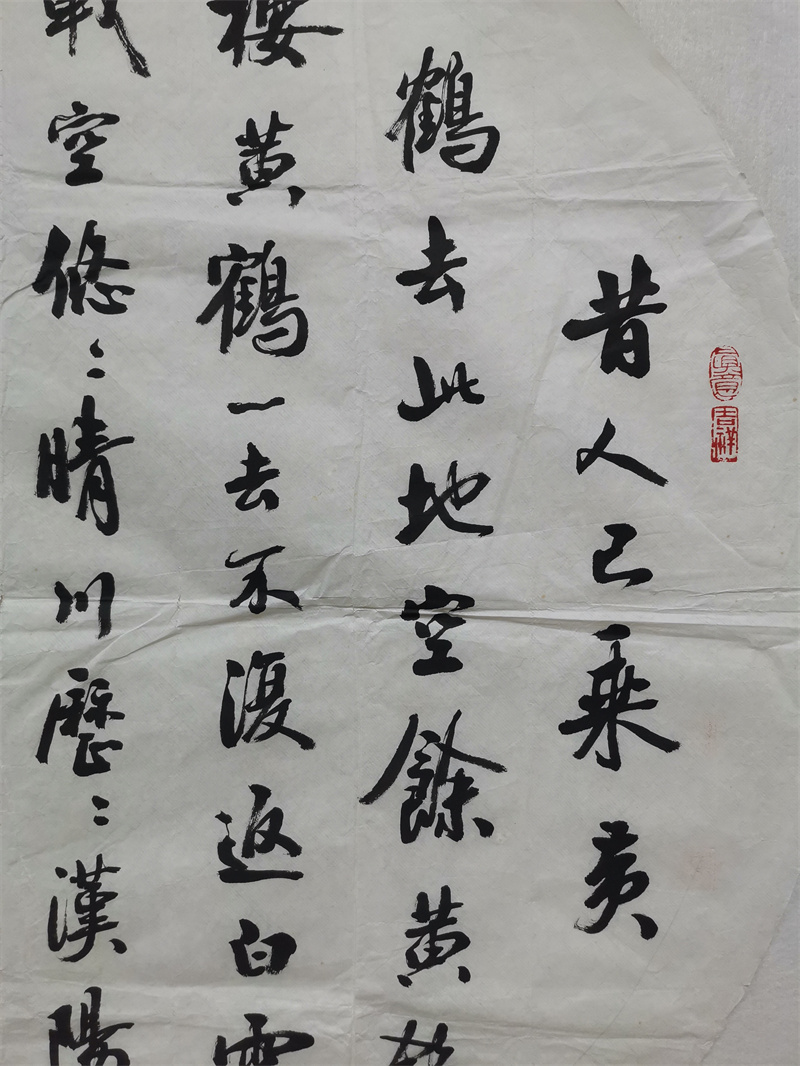 昔人已乘黄
鶴去此地空餘黄
樓黄鶴一去不復返白雲
載空悠〻晴川歷〻漢陽
吉祥